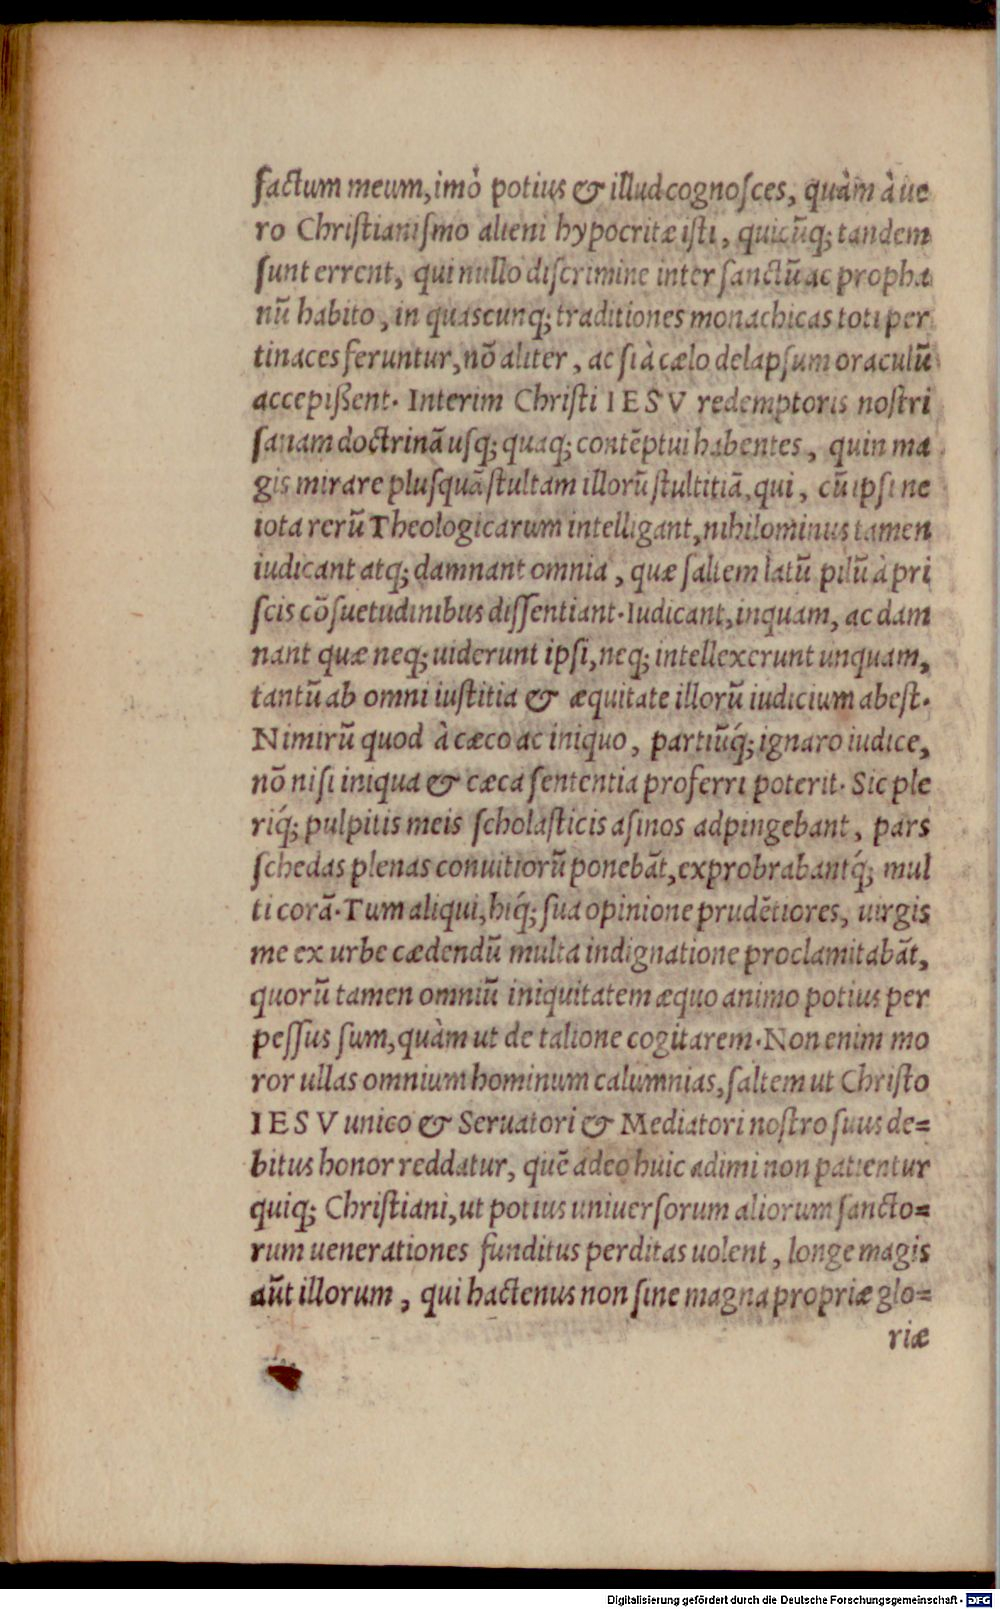 factum meum, imò potius & illud cognosces, quàm à ue
ro Christianismo alieni hypocritæ isti, quicũq; tandem
sunt errent, qui nullo discrimine inter sanctũ ac propha
nũ habito, in quascunq; traditiones monachicas toti per
tinaces feruntur, nõ aliter, ac si à cælo delapsum oraculũ
accepißent. Interim Christi IESV redemptoris nostri
sanam doctrinã usq; quaq; contẽptui habentes, quin ma
gis mirare plusquã stultam illorũ stultitiã, qui, cũ ipsi ne
iota rerũ Theologicarum intelligant, nihilominus tamen
iudicant atq; damnant omnia, quæ saltem latũ pilũ à pri
scis cõsuetudinibus dissentiant. Iudicant, inquam, ac dam
nant quæ neq; uiderunt ipsi, neq; intellexerunt unquam,
tantũ ab omni iustitia & æquitate illorũ iudicium abest.
Nimirũ quod à cæco ac iniquo, partiũq́; ignaro iudice,
nõ nisi iniqua & cæca sententia proferri poterit. Sic ple
riq́; pulpitis meis scholasticis asinos adpingebant, pars
schedas plenas conuitiorũ ponebãt, exprobrabantq́; mul
ti corã. Tum aliqui, hiq́; sua opinione prudẽtiores, uirgis
me ex urbe cædendũ multa indignatione proclamitabãt,
quorũ tamen omniũ iniquitatem æquo animo potius per
pessus sum, quàm ut de talione cogitarem. Non enim mo
ror ullas omnium hominum calumnias, saltem ut Christo
IESV unico & Seruatori & Mediatori nostro suus de=
bitus honor reddatur, quẽ adeo huic adimi non patientur
quiq; Christiani, ut potius uniuersorum aliorum sancto=
rum uenerationes funditus perditas uolent, longe magis
aũt illorum, qui hactenus non sine magna propriæ glo=
riæ
Digitalisierung gefördert durch die Deutsche Forschungsgemeinschaft - DFG